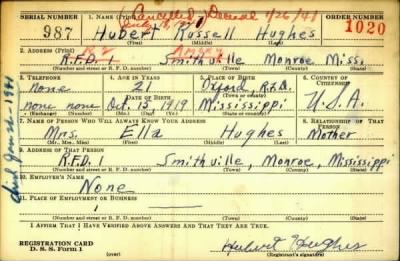 SERIAL NUMBER
1. NAME (Print)
ORDER NUMBER
Cancelled Deceased 1/26/41
987
Hubert Russell Hughes
1020
(First) (Middle) (Last)
2. ADDRESS (Print)
R.F.D. 1 Smithville Monroe Miss.
(Number and street or R. F. D. number) (Town) (County) (State)
3. TELEPHONE
4. AGE IN YEARS
5. PLACE OF BIRTH
6. COUNTRY OF CITIZENSHIP
None
21
Oxford, R.F.D.
DATE OF BIRTH
(Town or county)
none none
Oct. 15, 1919
Mississippi
U.S.A.
(Exchange) (Number)
(Mo.) (Day) (Yr.)
(State or country)
7. NAME OF PERSON WHO WILL ALWAYS KNOW YOUR ADDRESS
8. RELATIONSHIP OF THAT PERSON
Mrs. Ella Hughes
Mother
(Mr., Mrs., Miss) (First) (Middle) (Last)
9. ADDRESS OF THAT PERSON
R.F.D. 1 Smithville, Monroe, Mississippi
(Number and street or R. F. D. number) (Town) (County) (State)
10. EMPLOYER'S NAME
None
11. PLACE OF EMPLOYMENT OR BUSINESS
(Number and street or R. F. D. number) (Town) (County) (State)
I AFFIRM THAT I HAVE VERIFIED ABOVE ANSWERS AND THAT THEY ARE TRUE.
REGISTRATION CARD
D. S. S. Form 1
Hubert Hughes
(Registrant's signature)